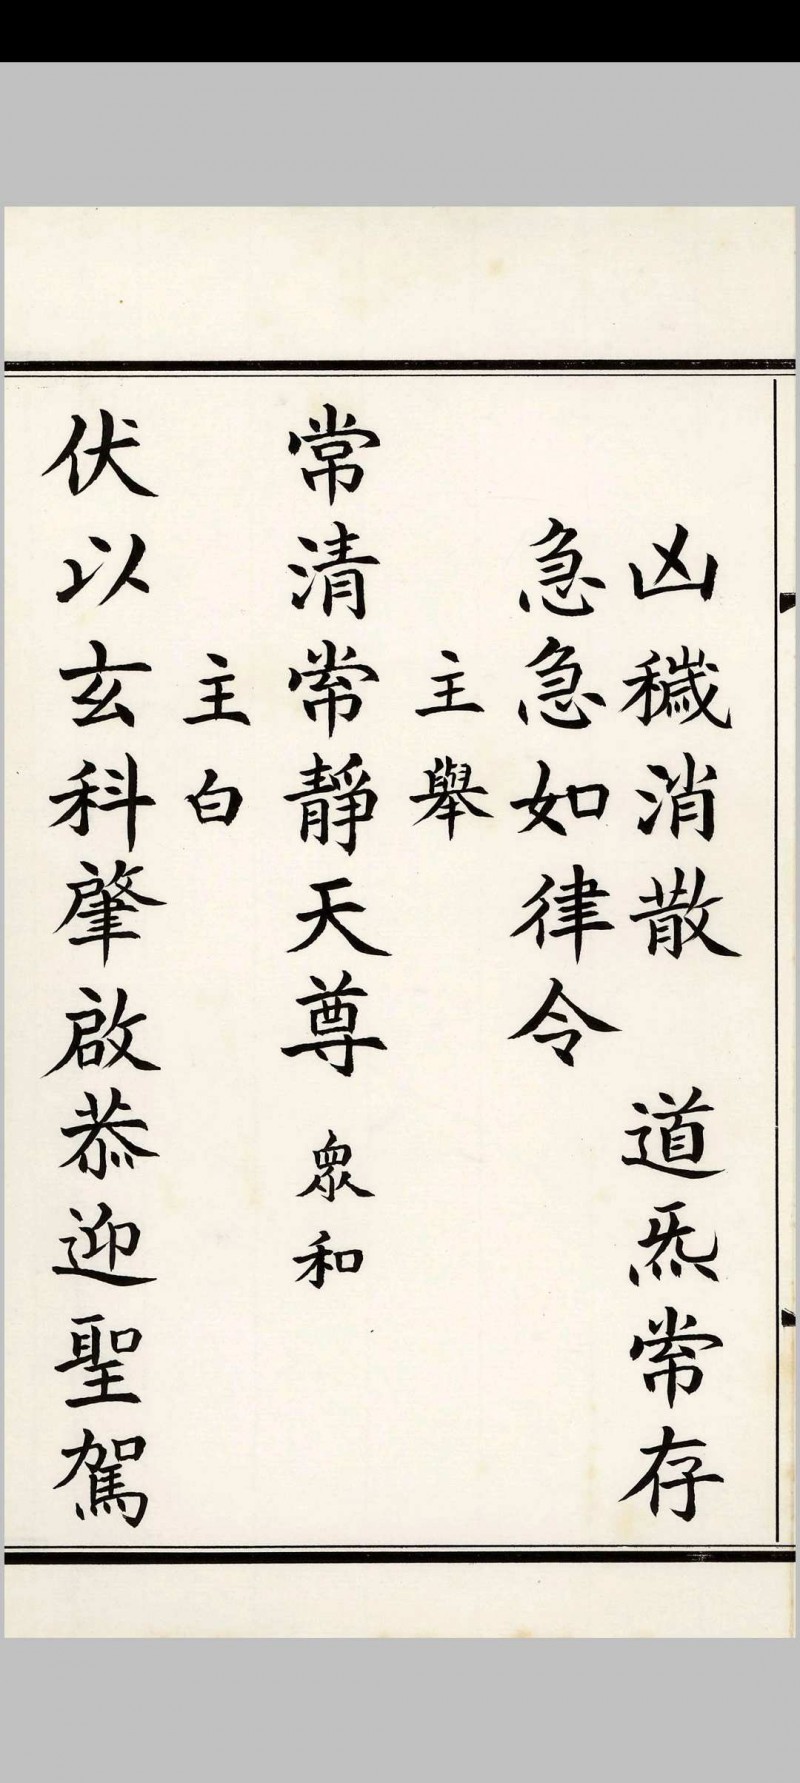 凶穢消散　道炁常存
急急如律令
主舉
常清常靜天尊　眾和
主白
伏以玄科肇啟恭迎聖駕